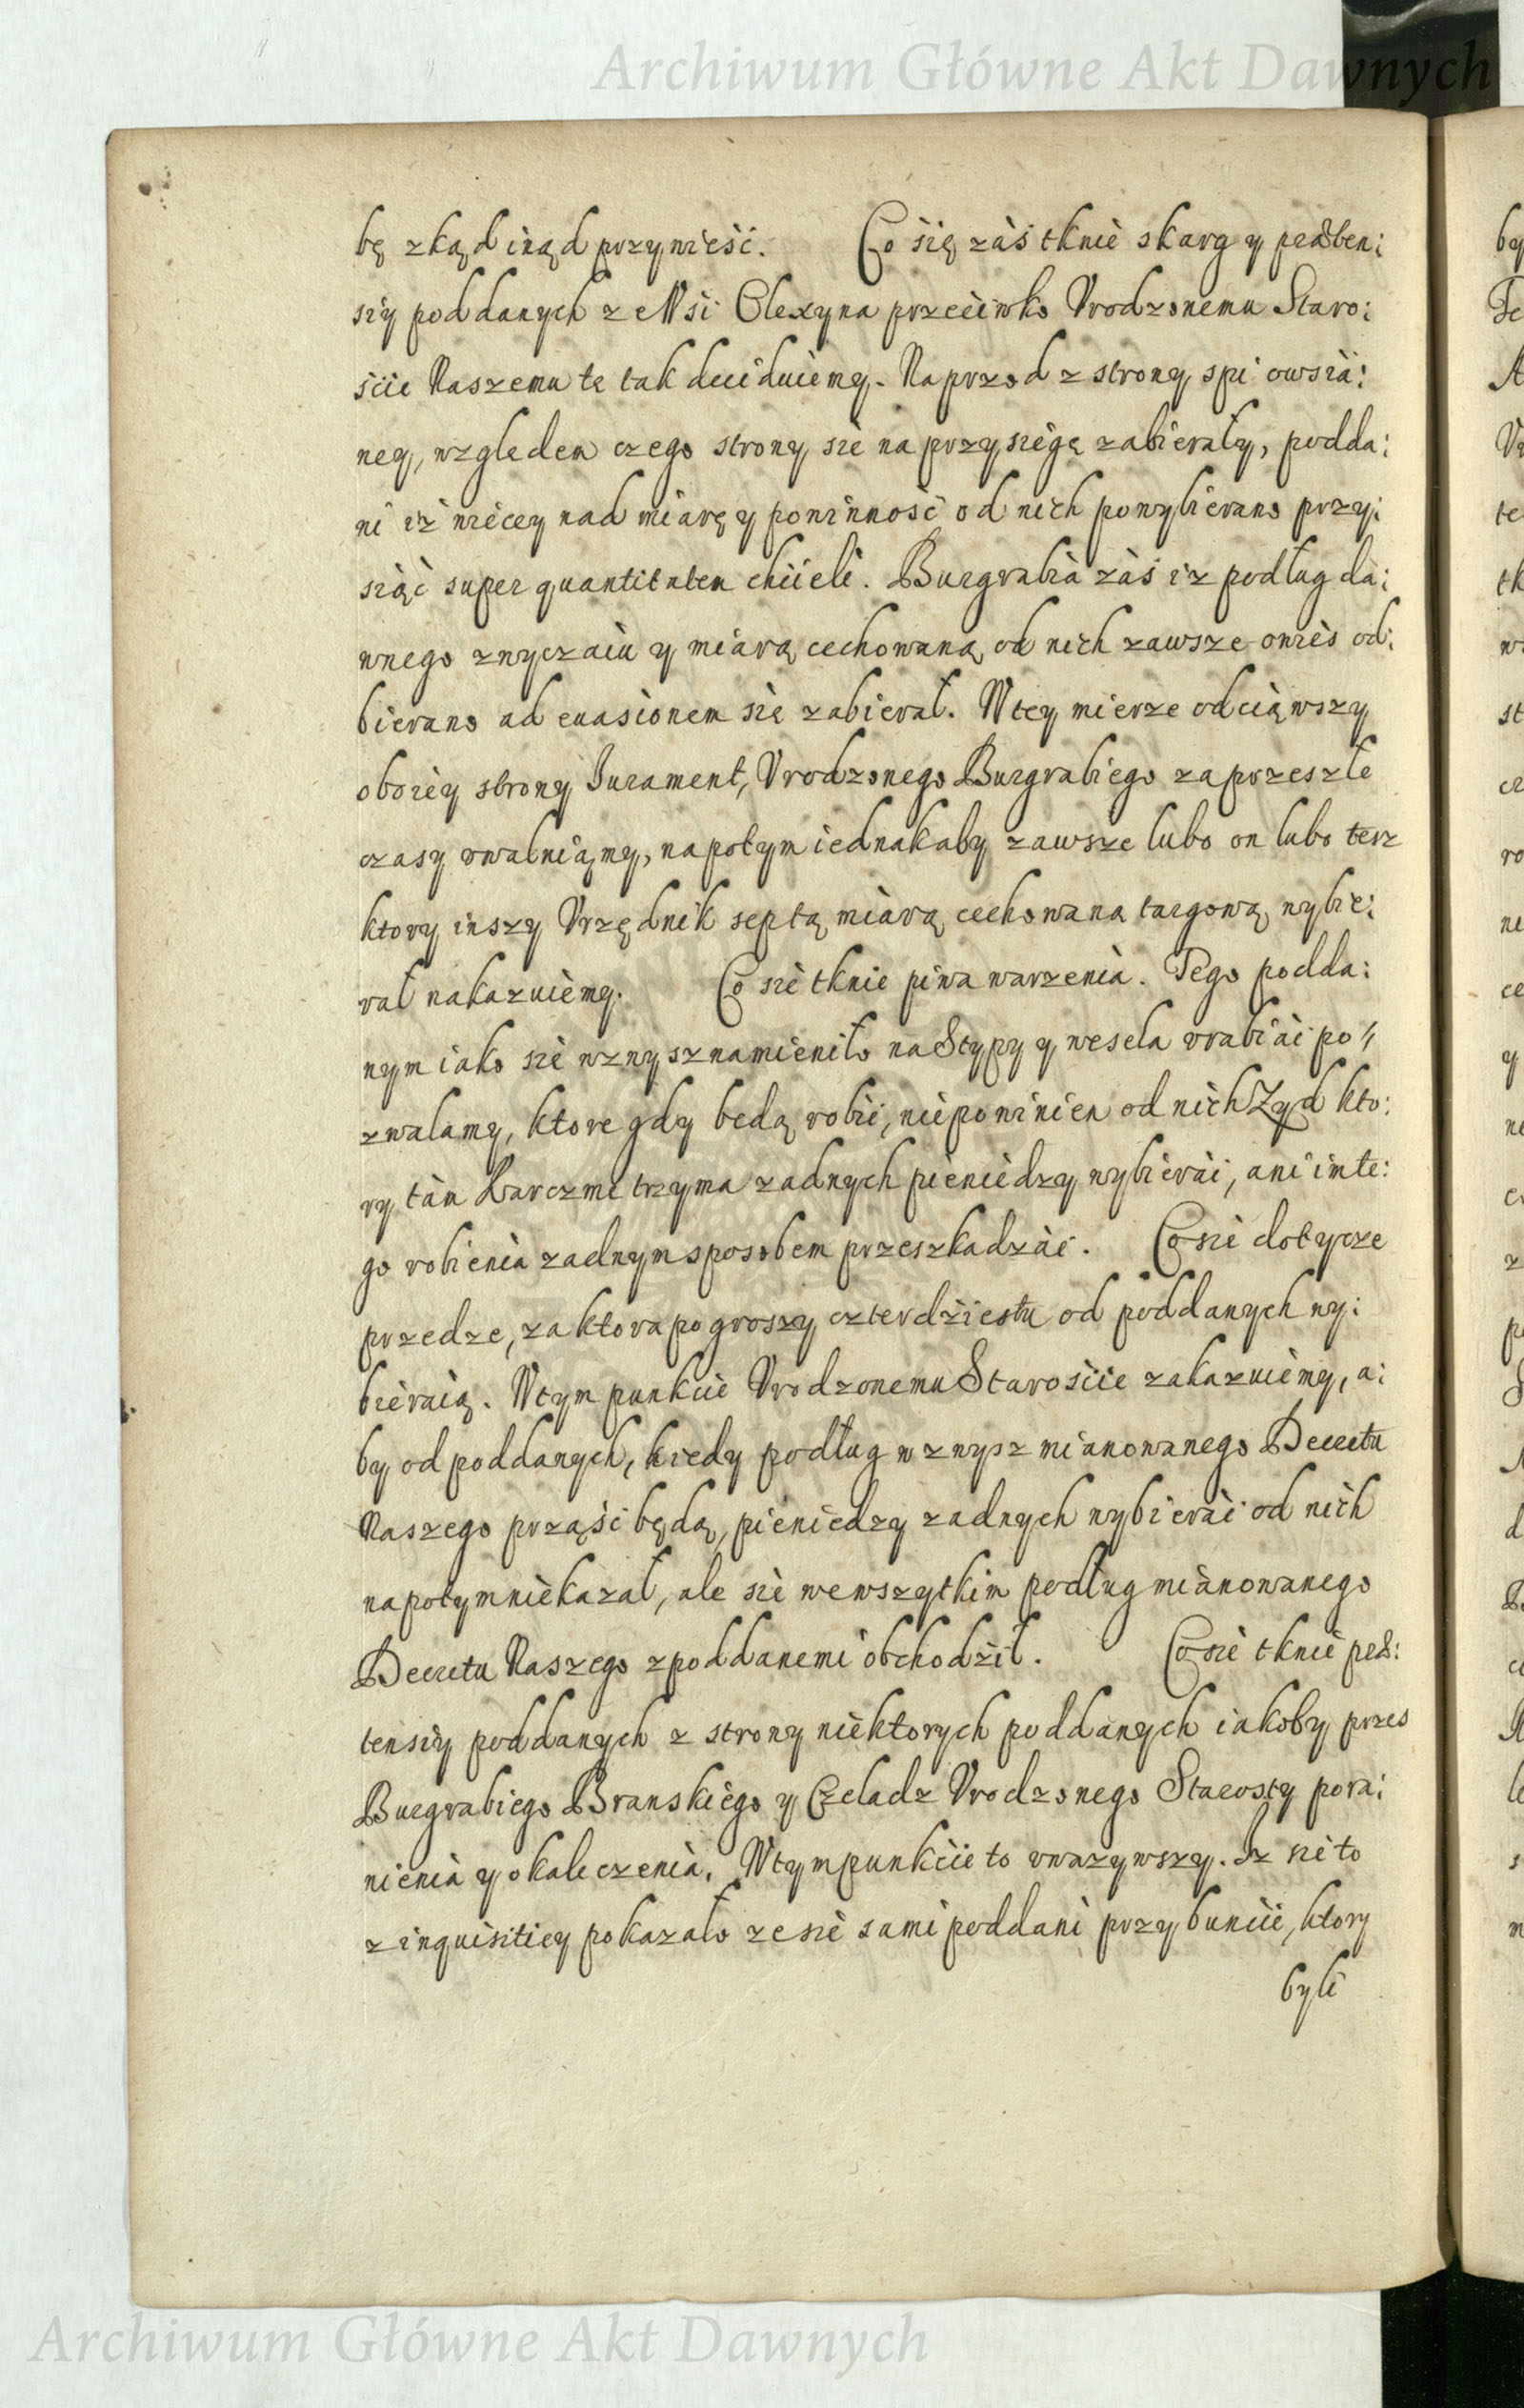 Archiwum Główne Akt Dawnych
bę zkąd inąd przynieść. Co się zaś tknie skarg y praeten:
siy poddanych ze Wsi Olexyna przeciwko Vrodzonemu Staro:
scie Naszemu te tak deciduiemy. Naprzod z strony spi owsia:
ney, wzgledem czego strony sie na przysiegę zabierały, podda:
ni iż wiecey nad miarę y powinność od nich powybierano przy:
siąc super quantitatem chcieli. Burgrabia zaś iz podług da:
wnego zwyczaiu y miarą cechowaną od nich zawsze owies od:
bierano ad euasionem się zabierał. W tey mierze odciąwszy
oboiey strony Jurament, Vrodzonego Burgrabiego za przeszłe
czasy vwalniamy, napotym iednak aby zawsze lubo on lubo tesz
ktory inszy Vrzędnik septą miarą cechowaną targową wybie:
rał nakazuiemy. Co sie tknie piwa warzenia. Tego podda:
nym iako sie wzwysz namieniło na Stypy y wesela vrabiać po//
zwalamy, ktore gdy będą robić, niepowinien od nich Zyd kto:
ry tam karczme trzyma zadnych pieniedzy wybierać, ani im te:
go robienia zadnym sposobem przeszkadzać. Co sie dotycze
przedze, za ktora po groszy czterdziestu od poddanych wy:
bieraią. W tym punkcie Vrodzonemu Staroscie zakazuiemy, a:
by od poddanych, kiedy podług wzwysz mianowanego Decretu
Naszego prząść będą, pieniedzy zadnych wybierać od nich
napotym niekazał, ale sie we wszytkim podług mianowanego
Decretu Naszego z poddanemi obchodził. Co sie tknie prae:
tensiy poddanych z strony niektorych poddanych iakoby przes
Burgrabiego Branskiego y Czeladz Vrodzonego Starosty pora:
nienia y okaleczenia. W tym punkcie to vwazywszy. Iz sie to
z inquisitiey pokazało ze sie sami poddani przy buncie, ktory
byli
Archiwum Główne Akt Dawnych